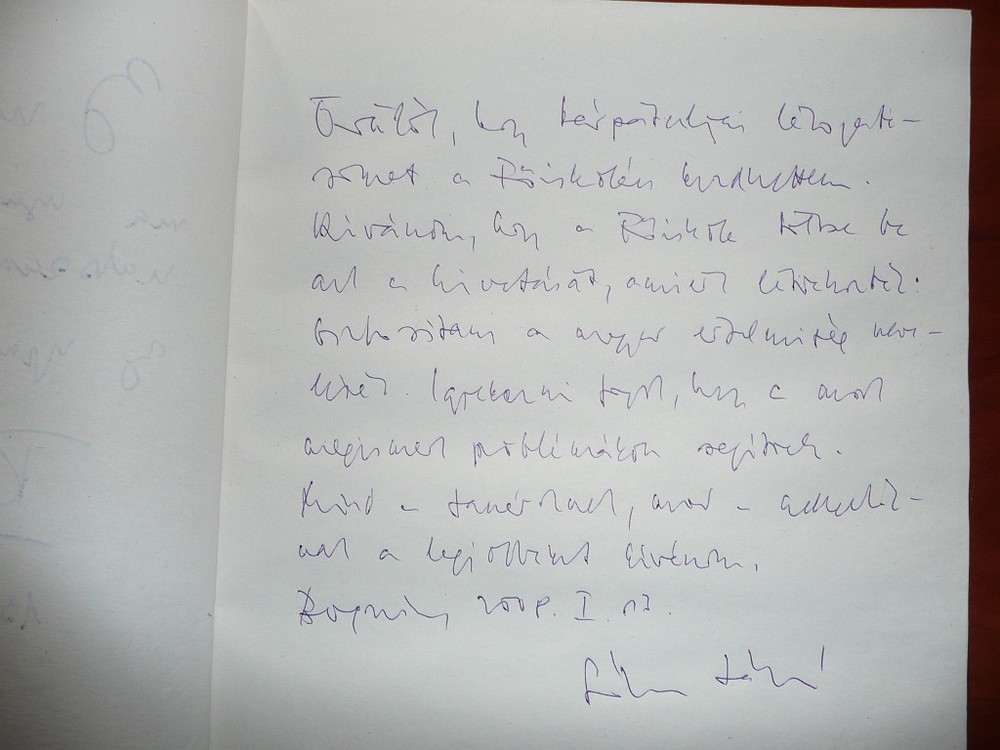 Örülök, hogy kárpátaljai látogatá-
somat a Főiskolán kezdhettem.
Kívánom, hogy a Főiskola töltse be
azt a hivatását, amiért létrehozták:
biztosítani a magyar értelmiség neve-
lését. Igyekezni fogok, hogy a most
megismert problémákon segítsek.
Mind a tanároknak, mind a
nak a legjobbakat kívánom.
I. 13.